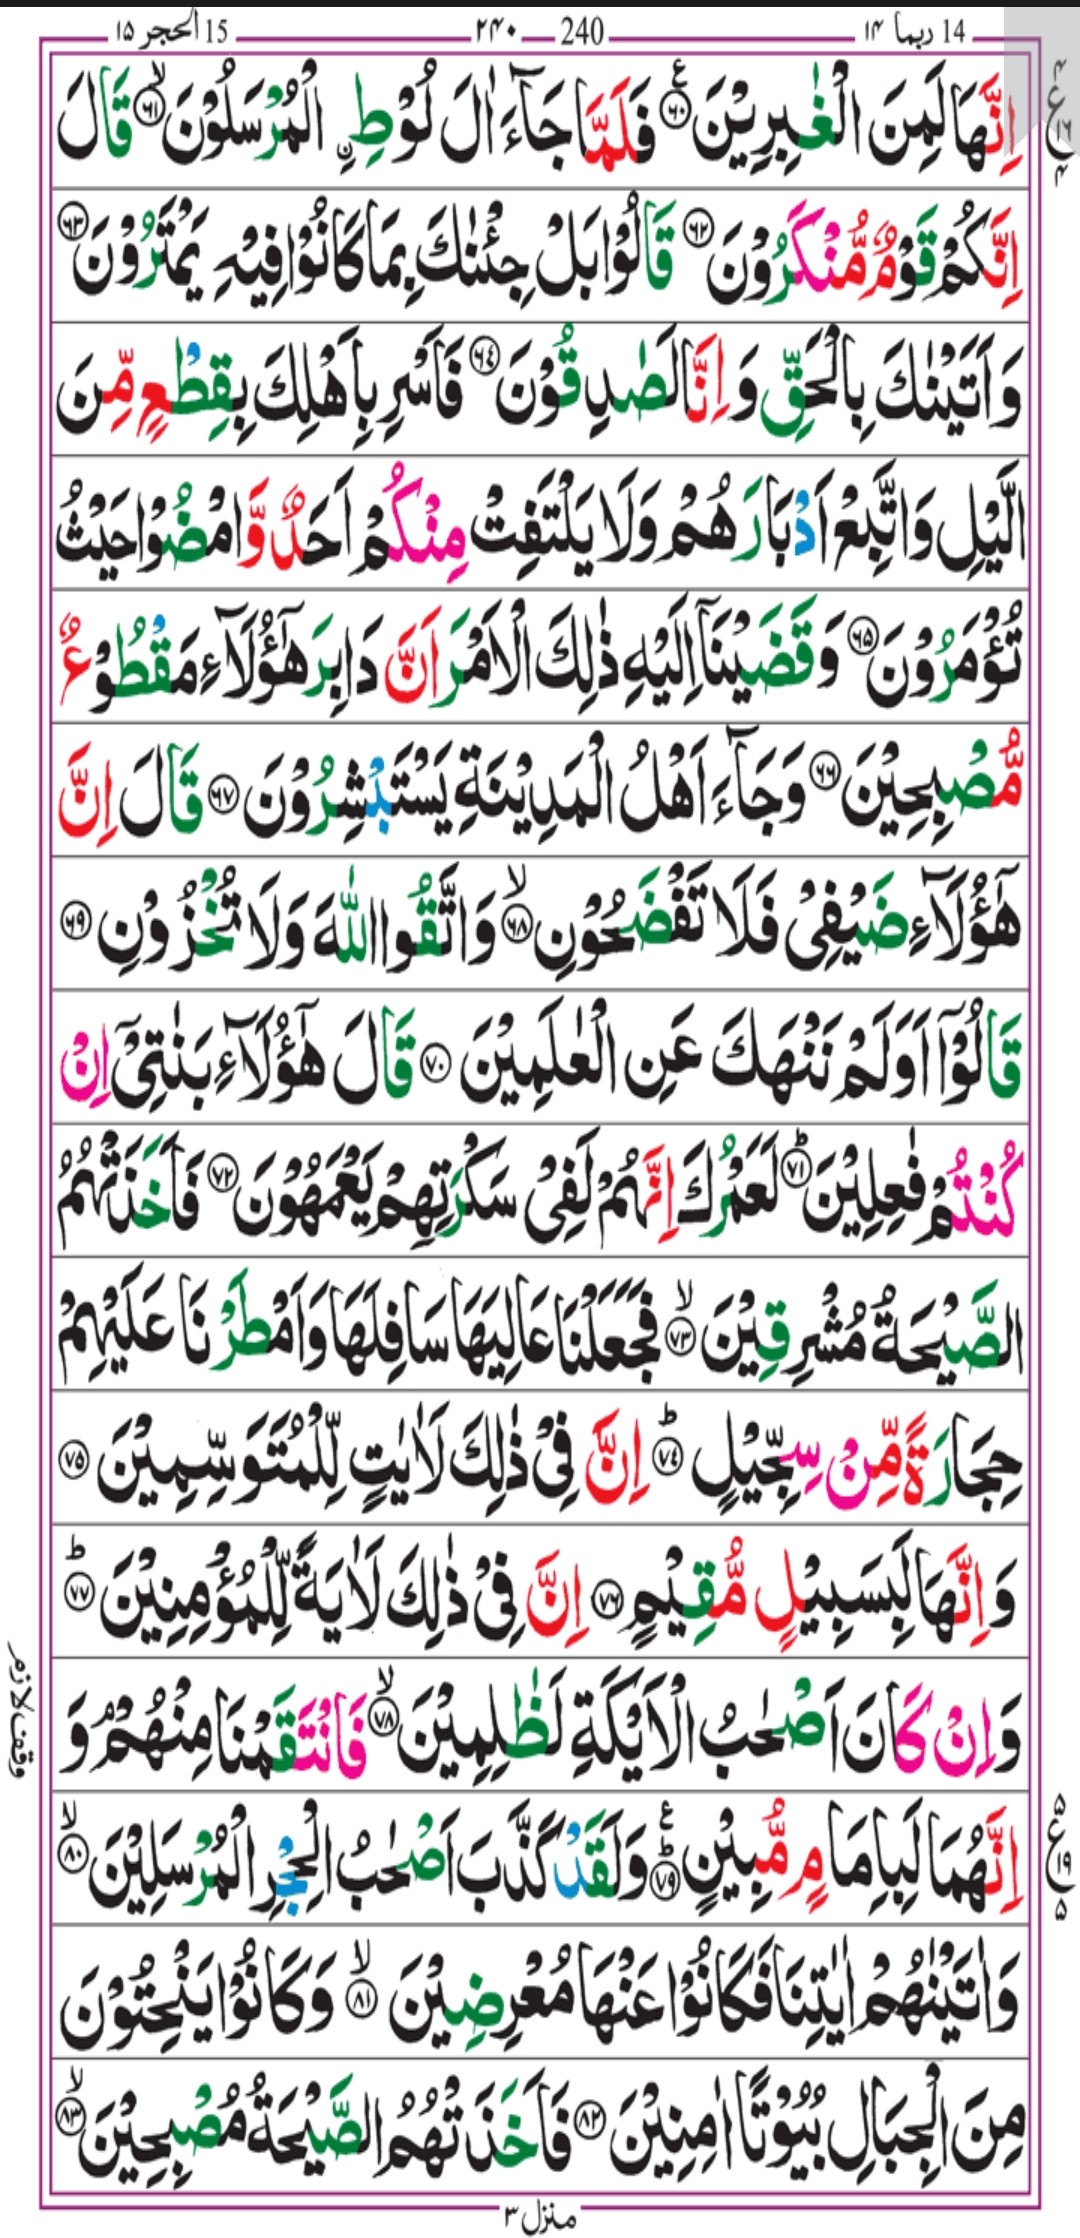 14 ربما ۱۴ 240 ۲۴۰ 15 الحجر ۱۵
اِنَّهَا لَمِنَ الْغٰبِرِيْنَ ۶۰ ع فَلَمَّا جَآءَ اٰلَ لُوْطِ ِۨالْمُرْسَلُوْنَ ۙ ۶۱ قَالَ
اِنَّكُمْ قَوْمٌ مُّنْكَرُوْنَ ۶۲ قَالُوْا بَلْ جِئْنٰكَ بِمَا كَانُوْا فِيْهِ يَمْتَرُوْنَ ۶۳
وَاَتَيْنٰكَ بِالْحَقِّ وَاِنَّا لَصٰدِقُوْنَ ۶۴ فَاَسْرِ بِاَهْلِكَ بِقِطْعٍ مِّنَ
الَّيْلِ وَاتَّبِعْ اَدْبَارَهُمْ وَلَا يَلْتَفِتْ مِنْكُمْ اَحَدٌ وَّامْضُوْا حَيْثُ
تُؤْمَرُوْنَ ۶۵ وَقَضَيْنَآ اِلَيْهِ ذٰلِكَ الْاَمْرَ اَنَّ دَابِرَ هٰٓؤُلَآءِ مَقْطُوْعٌ
مُّصْبِحِيْنَ ۶۶ وَجَآءَ اَهْلُ الْمَدِيْنَةِ يَسْتَبْشِرُوْنَ ۶۷ قَالَ اِنَّ
هٰٓؤُلَآءِ ضَيْفِيْ فَلَا تَفْضَحُوْنِ ۙ ۶۸ وَاتَّقُوا اللّٰهَ وَلَا تُخْزُوْنِ ۶۹
قَالُوْٓا اَوَلَمْ نَنْهَكَ عَنِ الْعٰلَمِيْنَ ۷۰ قَالَ هٰٓؤُلَآءِ بَنٰتِيْٓ اِنْ
كُنْتُمْ فٰعِلِيْنَ ؕ ۷۱ لَعَمْرُكَ اِنَّهُمْ لَفِيْ سَكْرَتِهِمْ يَعْمَهُوْنَ ۷۲ فَاَخَذَتْهُمُ
الصَّيْحَةُ مُشْرِقِيْنَ ۙ ۷۳ فَجَعَلْنَا عَالِيَهَا سَافِلَهَا وَاَمْطَرْنَا عَلَيْهِمْ
حِجَارَةً مِّنْ سِجِّيْلٍ ؕ ۷۴ اِنَّ فِيْ ذٰلِكَ لَاٰيٰتٍ لِّلْمُتَوَسِّمِيْنَ ۷۵
وَاِنَّهَا لَبِسَبِيْلٍ مُّقِيْمٍ ۷۶ اِنَّ فِيْ ذٰلِكَ لَاٰيَةً لِّلْمُؤْمِنِيْنَ ؕ ۷۷
وَاِنْ كَانَ اَصْحٰبُ الْاَيْكَةِ لَظٰلِمِيْنَ ۙ ۷۸ فَانْتَقَمْنَا مِنْهُمْ وَ
اِنَّهُمَا لَبِاِمَامٍ مُّبِيْنٍ ؕ ۷۹ ع وَلَقَدْ كَذَّبَ اَصْحٰبُ الْحِجْرِ الْمُرْسَلِيْنَ ۙ ۸۰
وَاٰتَيْنٰهُمْ اٰيٰتِنَا فَكَانُوْا عَنْهَا مُعْرِضِيْنَ ۙ ۸۱ وَكَانُوْا يَنْحِتُوْنَ
مِنَ الْجِبَالِ بُيُوْتًا اٰمِنِيْنَ ۸۲ فَاَخَذَتْهُمُ الصَّيْحَةُ مُصْبِحِيْنَ ۙ ۸۳
منزل ۳
۴ ع ۱۶ ۴
وقف لازم
۵ ع ۱۹ ۵